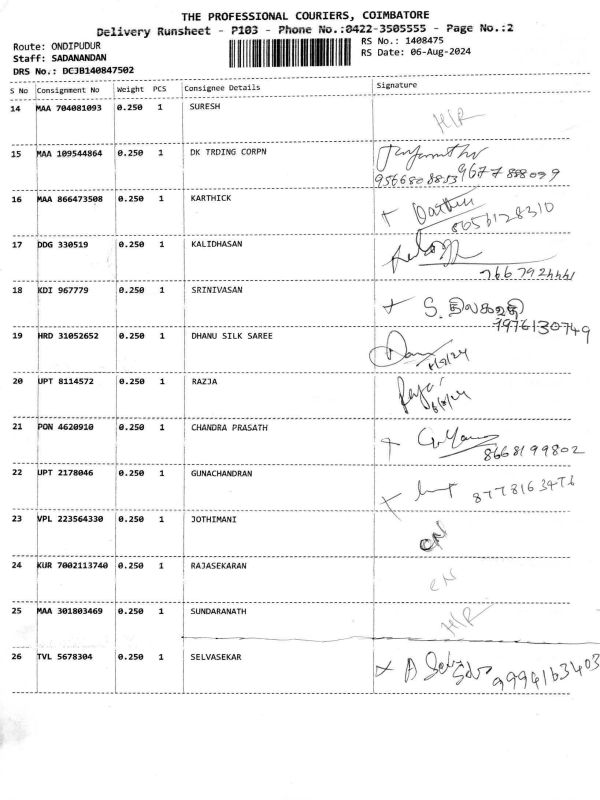 THE PROFESSIONAL COURIERS, COIMBATORE
Delivery Runsheet - P103 - Phone No.:0422-3505555 - Page No.:2
Route: ONDIPUDUR RS No.: 1408475
Staff: SADANANDAN RS Date: 06-Aug-2024
DRS No.: DCJB140847502
S No Consignment No Weight PCS Consignee Details Signature
14 MAA 704081093 0.250 1 SURESH H/R
15 MAA 109544864 0.250 1 DK TRDING CORPN
16 MAA 866473508 0.250 1 KARTHICK 8056128310
17 DDG 330519 0.250 1 KALIDHASAN
18 KDI 967779 0.250 1 SRINIVASAN S. திலகவதி
7976130749
19 HRD 31052652 0.250 1 DHANU SILK SAREE
20 UPT 8114572 0.250 1 RAZJA
21 PON 4620910 0.250 1 CHANDRA PRASATH
8668199802
22 UPT 2178046 0.250 1 GUNACHANDRAN 8778163476
23 VPL 223564330 0.250 1 JOTHIMANI CN
24 KUR 7002113740 0.250 1 RAJASEKARAN CN
25 MAA 301803469 0.250 1 SUNDARANATH H/R
26 TVL 5678304 0.250 1 SELVASEKAR 9994163403